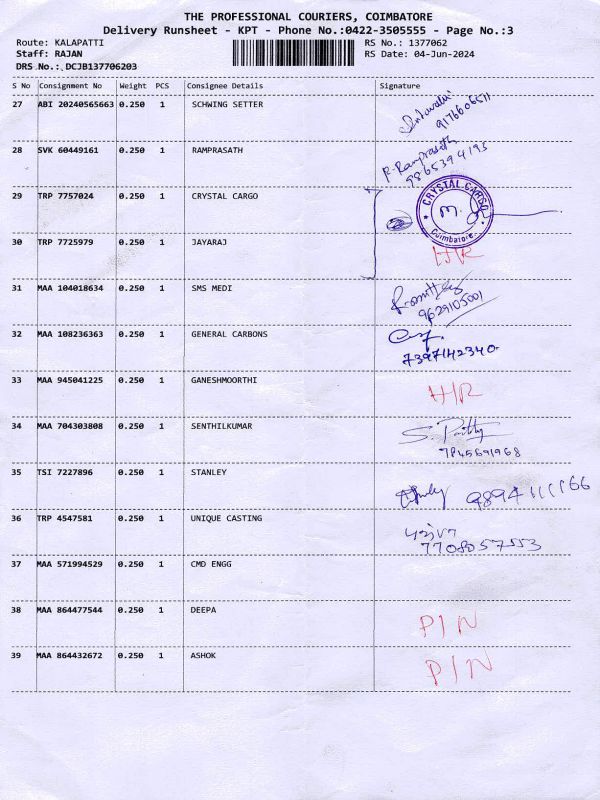 THE PROFESSIONAL COURIERS, COIMBATORE
Delivery Runsheet - KPT - Phone No.:0422-3505555 - Page No.:3
Route: KALAPATTI RS No.: 1377062
Staff: RAJAN RS Date: 04-Jun-2024
DRS No.: DCJB137706203
S No Consignment No Weight PCS Consignee Details Signature
27 ABI 20240565663 0.250 1 SCHWING SETTER
9176606511
28 SVK 60449161 0.250 1 RAMPRASATH P. Ramprasath
9865394193
29 TRP 7757024 0.250 1 CRYSTAL CARGO CRYSTAL CARGO
Coimbatore.
30 TRP 7725979 0.250 1 JAYARAJ H/R
31 MAA 104018634 0.250 1 SMS MEDI
9629105001
32 MAA 108236363 0.250 1 GENERAL CARBONS
7397142340
33 MAA 945041225 0.250 1 GANESHMOORTHI H/R
34 MAA 704303808 0.250 1 SENTHILKUMAR
7845691968
35 TSI 7227896 0.250 1 STANLEY 9894111166
36 TRP 4547581 0.250 1 UNIQUE CASTING
7708057553
37 MAA 571994529 0.250 1 CMD ENGG
38 MAA 864477544 0.250 1 DEEPA P/N
39 MAA 864432672 0.250 1 ASHOK P/N